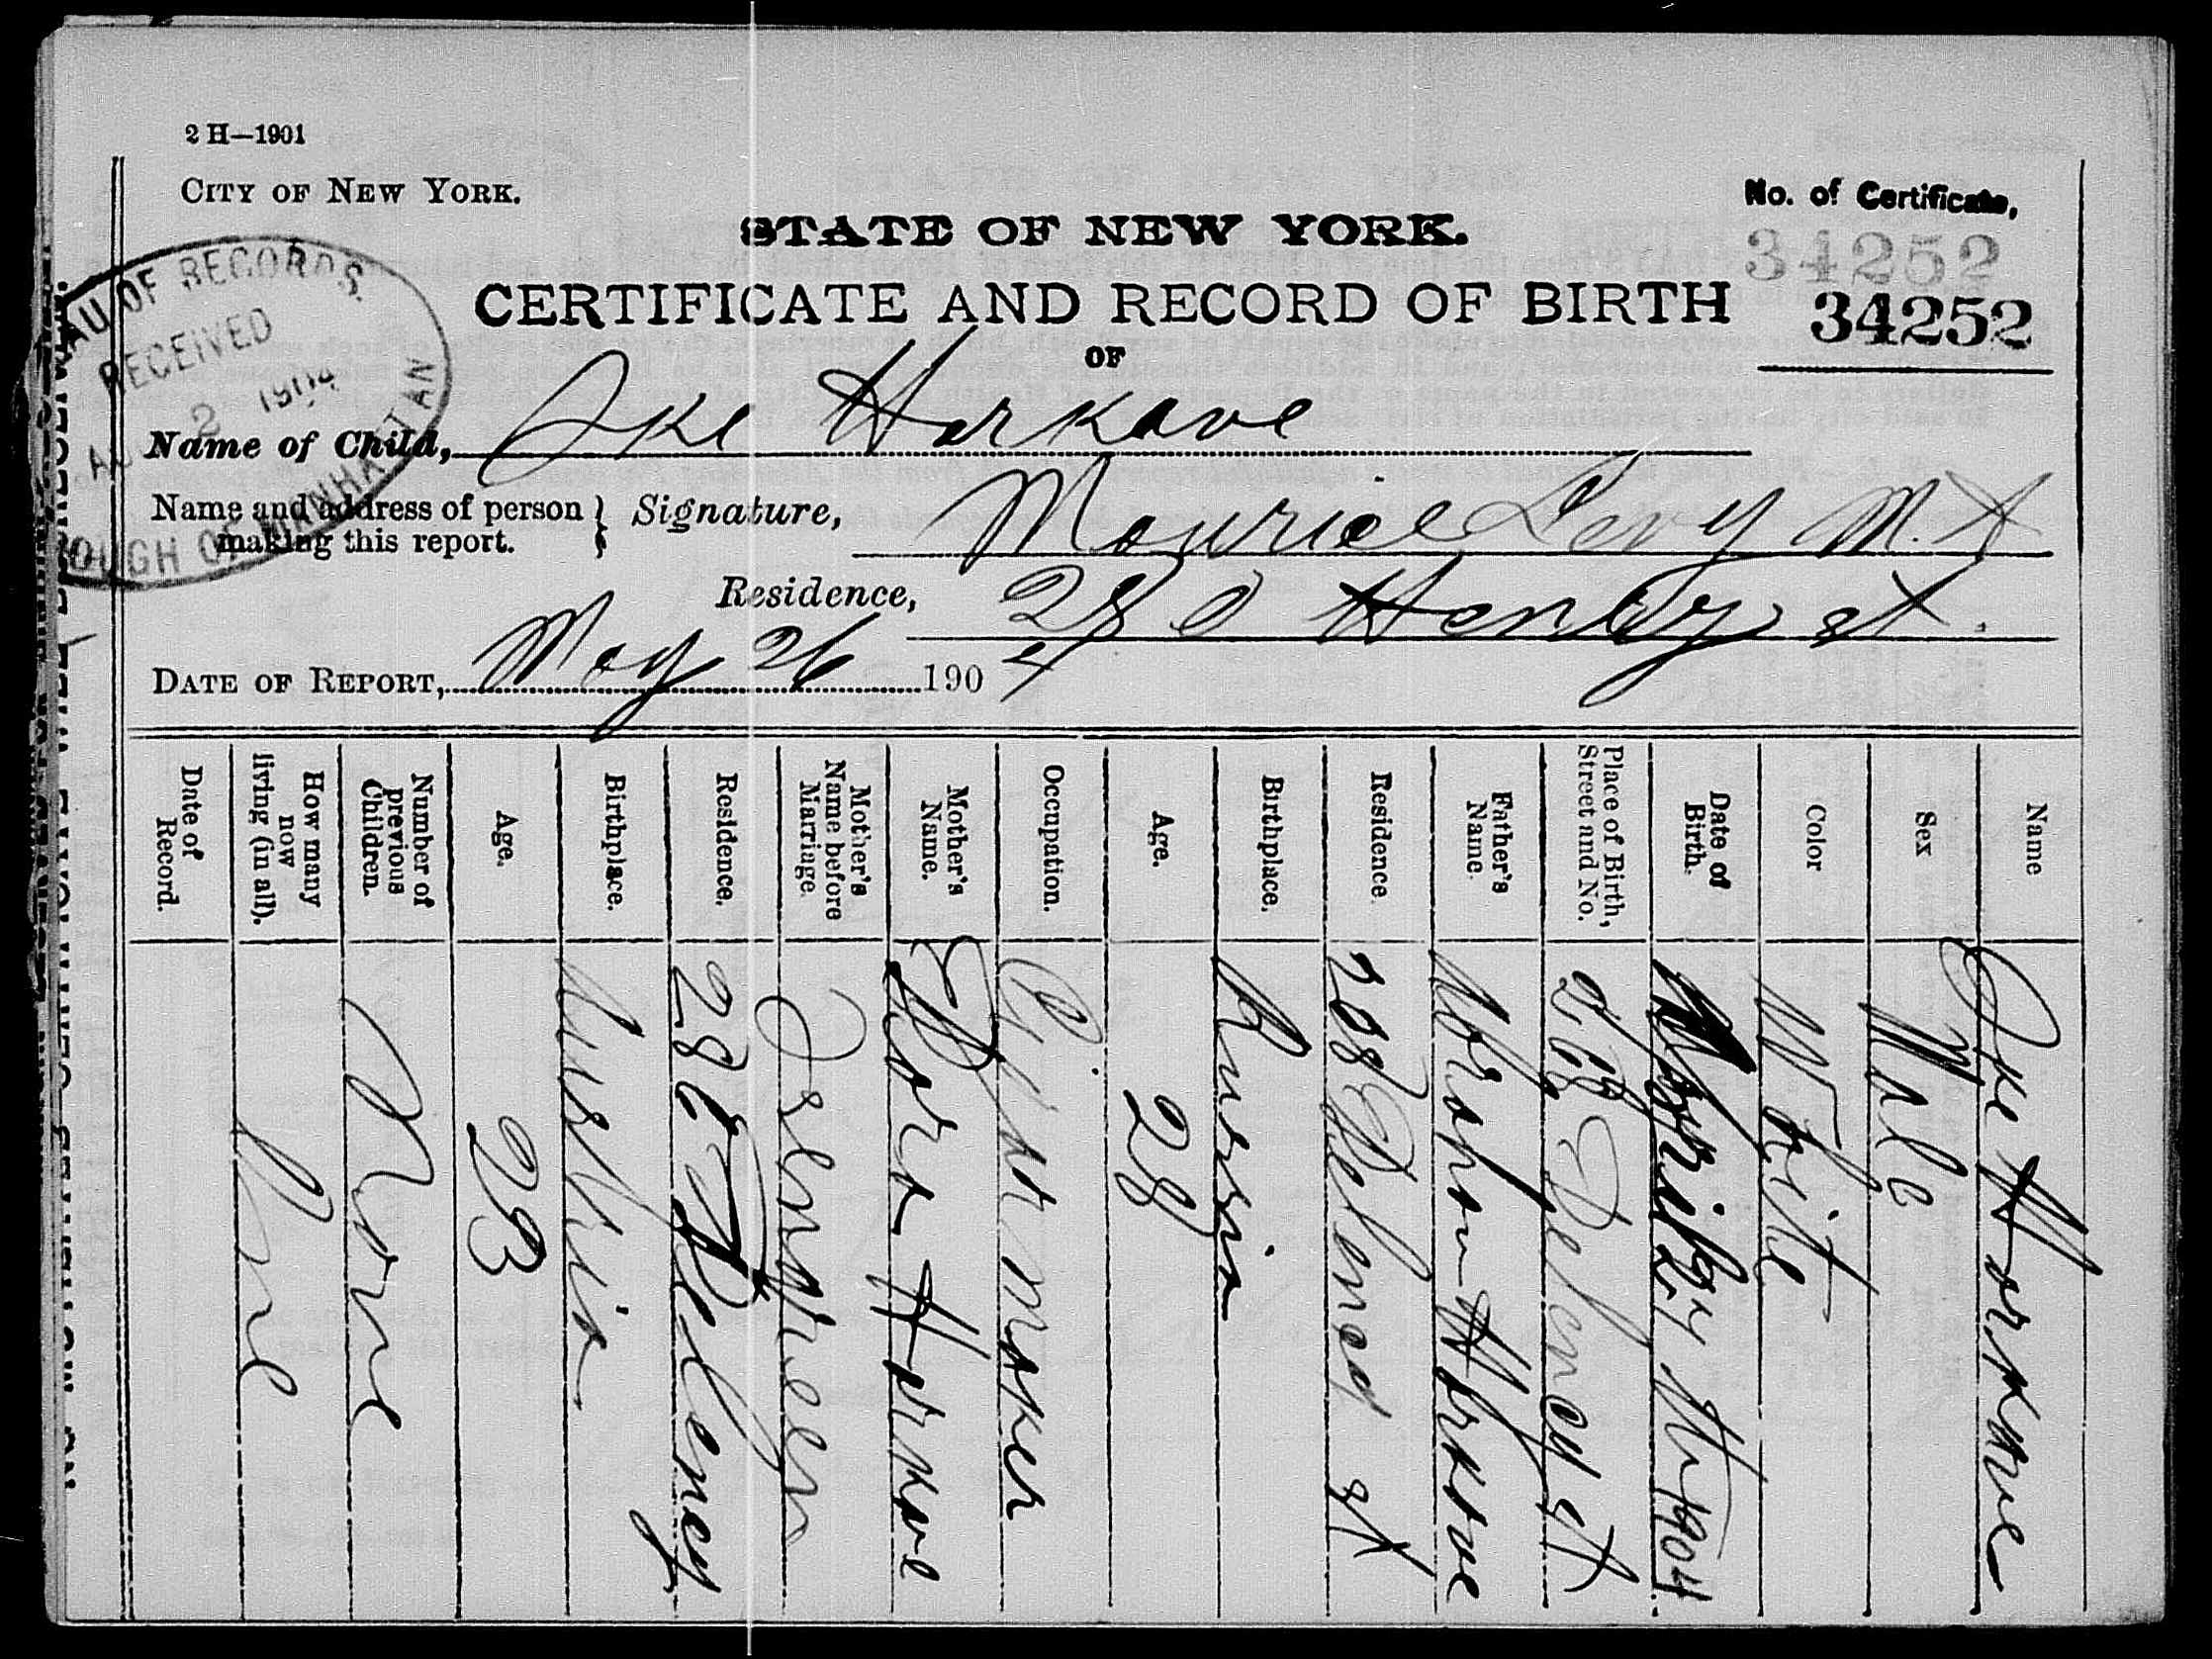 2 H—1901
CITY OF NEW YORK.
No. of Certificate,
34252
34252
STATE OF NEW YORK.
CERTIFICATE AND RECORD OF BIRTH
OF
BUREAU OF RECORDS.
RECEIVED
AUG 2 1904
BOROUGH OF MANHATTAN
Name of Child, Ike Harkave
Name and address of person making this report. } Signature, Maurice Levy M.D
Residence, 280 Henry st.
DATE OF REPORT, May 26 1904
Name Ike Harkave
Sex Male
Color White
Date of Birth. 1904
Place of Birth, Street and No. 268 Delancy st
Father's Name. Abraham Harkave
Residence. 268 Delancy st
Birthplace. Russia
Age. 28
Occupation. maker
Mother's Name. Dora Harkave
Mother's Name before Marriage.
Residence. Delancy
Birthplace. Austria
Age. 23
Number of previous Children. None
How many now living (in all). One
Date of Record.